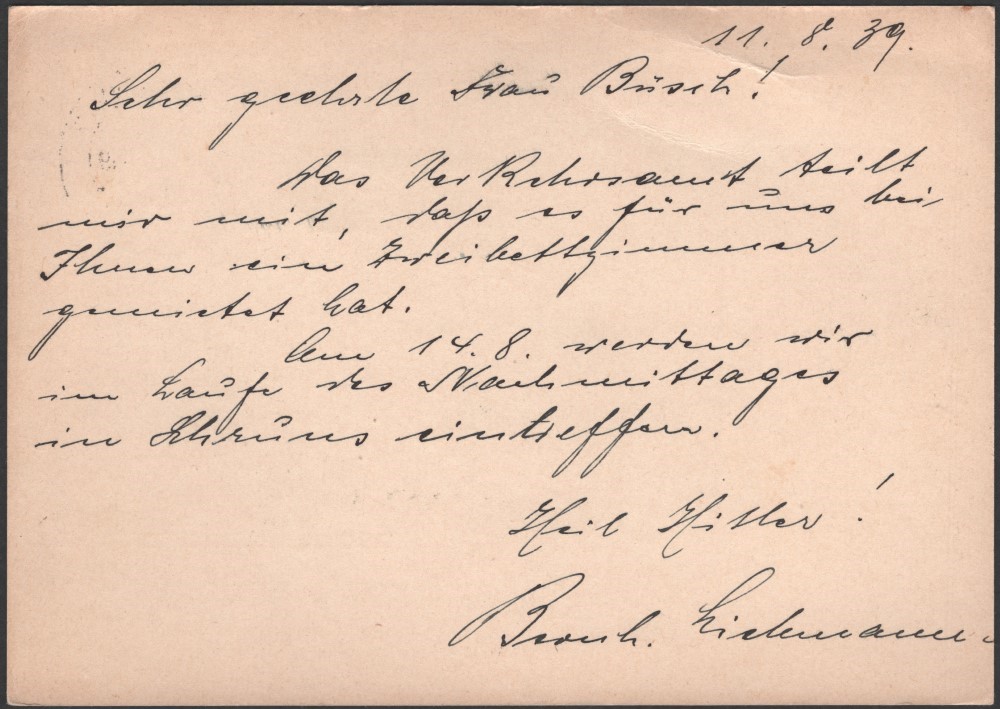 11. 8. 39.
Sehr geehrte Frau Büsch!
Das Verkehrsamt teilt
mir mit, daß es für uns bei
Ihnen ein Zweibettzimmer
gemietet hat.
Am 14. 8. werden wir
im Laufe des Nachmittages
in Schruns eintreffen.
Heil Hitler!
Bernh.